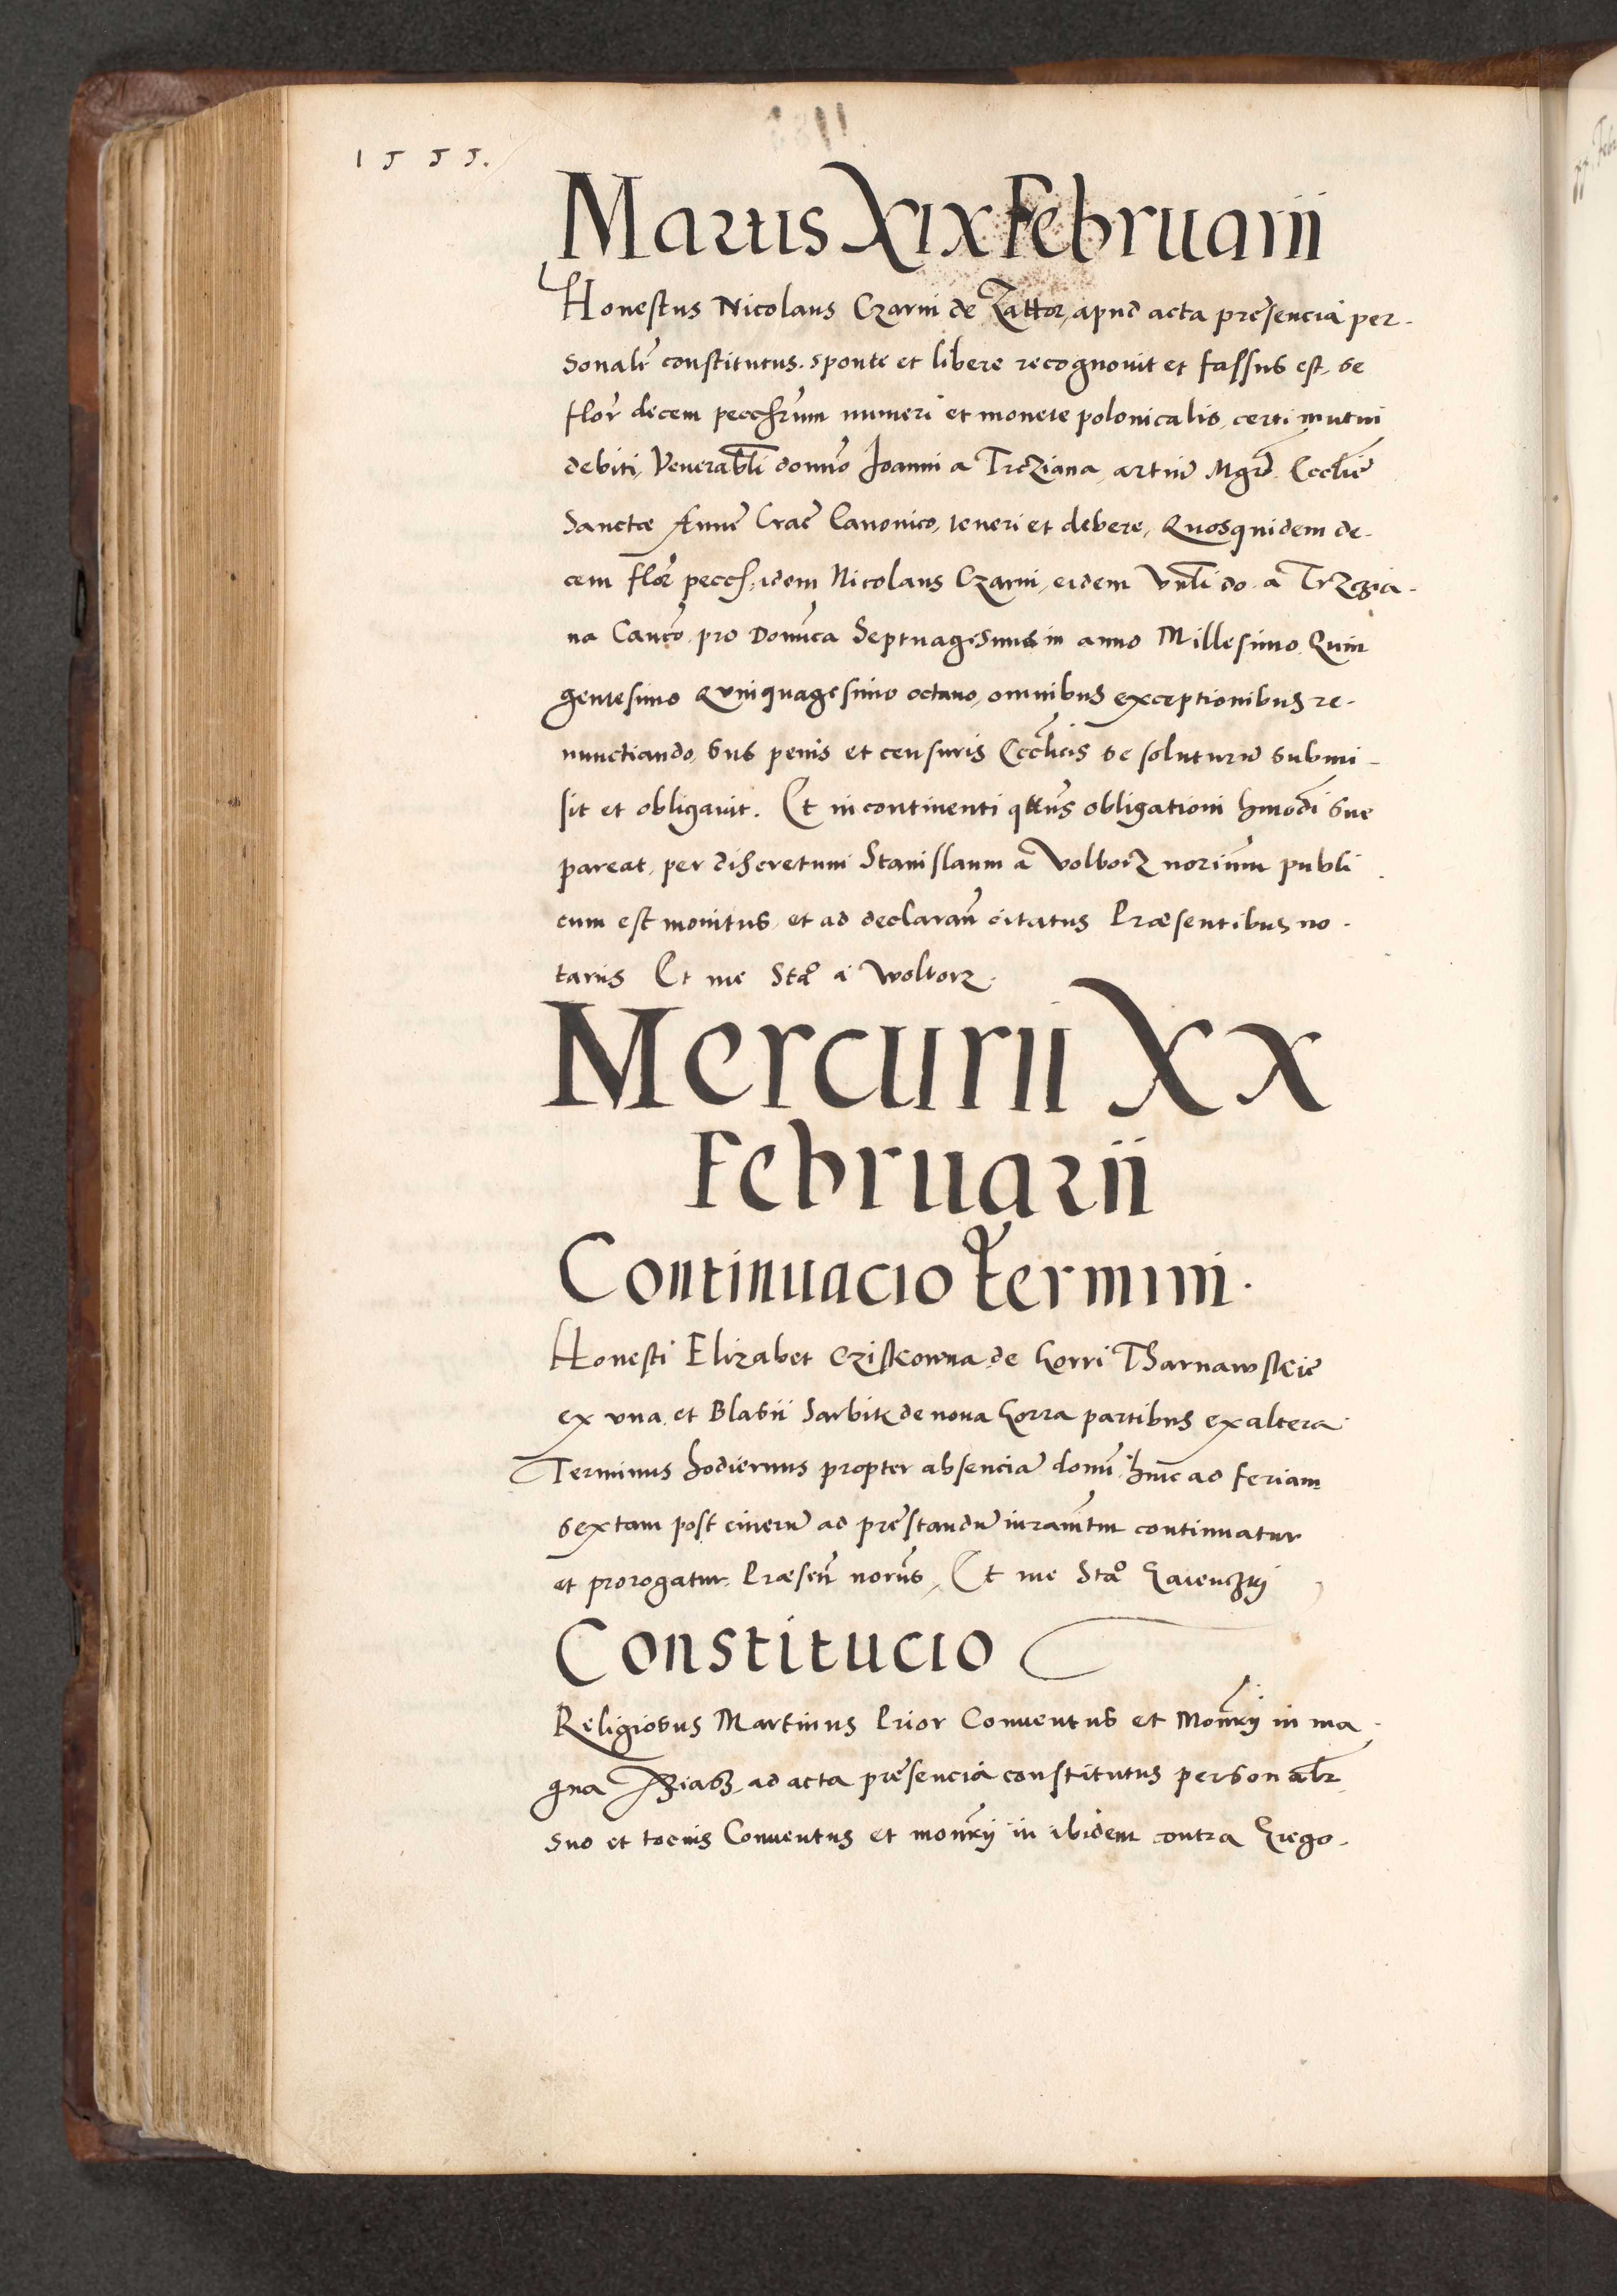 1555.
Martis XIX Februarii
Honestus Nicolaus Czarni de Zattor, apud acta presencia per-
sonalr̃ constitutus. sponte et libere recognouit et fassus est, se
flor̃ decem peccħrum numeri et monete polonicalis, certi mutui
debiti, Venerabli domno Joanni a Trzciana, artiũ Mgro Eccliẽ
Sanctæ Annẽ Cracẽ Canonico, teneri et debere, Quosquidem de-
cem flor̃ peccħ, idem Nicolaus Czarni, eidem Vnbli do. a Trzczia-
na Canco. pro Domica Septuagesimæ in anno Millesimo Quin
gentesimo Quinquagesimo octauo, omnibus exceptionibus re-
nunctiando, sus penis et censuris Ecclicis se soluturũ submi-
sit et obligauit. Et in continenti qtnus obligationi hmodi sue
pareat, per discretum Stanislaum a Volborz norium publi
cum est monitus, et ad declaran̄ citatus Præsentibus no-
tariis Et me Stão a Wolborz.
Mercurii XX
Februarii
Continuacio termini.
Honesti Elizabet Cziskowna de Gorri Tharnawskie
ex vna et Blasii Sarbik de noua Gorra partibus ex altera
Terminus hodiernus propter absenciã domi hinc ad feriam
sextam post cinerũ ad prestandũ iuramtm continuatur
et prorogatur. Præsen̄ norus, Et me Stão Zaienczkij
Constitucio
Religiosus Martinus Prior Conuentus et Monrij in ma-
gna Xziasz, ad acta presencia constitutus personalr̃
suo et tocius Conuentus et monrij in ibidem contra Grego-